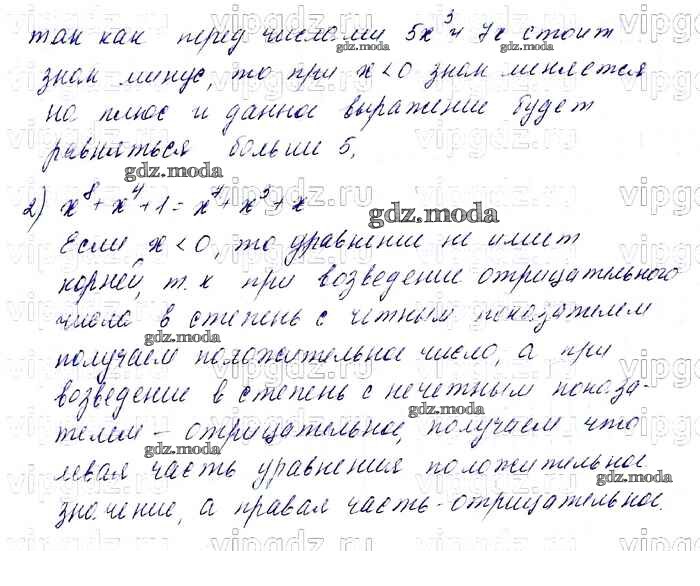 так как перед числами 5x³ и 7x стоит
знак минус, то при x<0 знак меняется
на плюс и данное выражение будет
равняться больше 5.
2) x⁸ + x⁴ + 1 = x⁷ + x³ + x
Если x<0, то уравнение не имеет
корней, т.к при возведение отрицательного
числа в степень с четным показателем
получаем положительное число, а при
возведение в степень с нечетным показа-
телем - отрицательное, получаем что
левая часть уравнения положительное
значение, а правая часть - отрицательное.
gdz.moda
vipgdz.ru